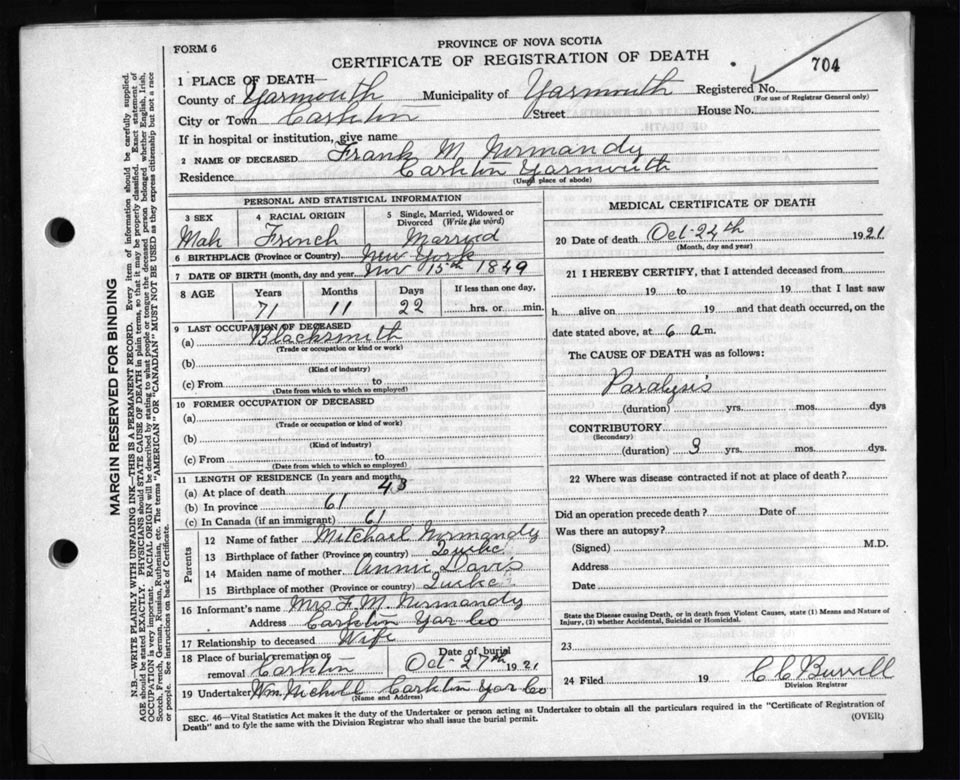 FORM 6
PROVINCE OF NOVA SCOTIA
CERTIFICATE OF REGISTRATION OF DEATH
704
1 PLACE OF DEATH—
County of Yarmouth Municipality of Yarmouth Registered No.
(For use of Registrar General only)
City or Town Carleton Street House No.
If in hospital or institution, give name
2 NAME OF DECEASED Frank M. Normandy
Residence Carleton Yarmouth
(Usual place of abode)
PERSONAL AND STATISTICAL INFORMATION
3 SEX 4 RACIAL ORIGIN 5 Single, Married, Widowed or Divorced (Write the word)
Male French Married
6 BIRTHPLACE (Province or Country) New York
7 DATE OF BIRTH (month, day and year) Nov 15th 1849
8 AGE Years Months Days If less than one day,
71 11 22 hrs. or min.
9 LAST OCCUPATION OF DECEASED
(a) Blacksmith
(Trade or occupation or kind or work)
(b)
(Kind of industry)
(c) From to
(Date from which to which so employed)
10 FORMER OCCUPATION OF DECEASED
(a)
(Trade or occupation or kind of work)
(b)
(Kind of industry)
(c) From to
(Date from which to which so employed)
11 LENGTH OF RESIDENCE (In years and months)
(a) At place of death 48
(b) In province 61
(c) In Canada (if an immigrant) 61
Parents
12 Name of father Mitchael Normandy
13 Birthplace of father (Province or country) Quebc
14 Maiden name of mother Annie Davis
15 Birthplace of mother (Province or country) Quebc
16 Informant's name Mrs F. M. Normandy
Address Carleton Yar Co
17 Relationship to deceased Wife
18 Place of burial, cremation or removal Carleton Date of burial Oct-27th 1921
19 Undertaker Wm. Nickoll Carleton Yar Co
(Name and Address)
MEDICAL CERTIFICATE OF DEATH
20 Date of death Oct-24th 1921
(Month, day and year)
21 I HEREBY CERTIFY, that I attended deceased from
19 to 19 that I last saw
h alive on 19 and that death occurred, on the
date stated above, at 6 am.
The CAUSE OF DEATH was as follows:
Paralysis
(duration) yrs. mos. dys
CONTRIBUTORY
(Secondary)
(duration) 3 yrs. mos. dys
22 Where was disease contracted if not at place of death?
Did an operation precede death? Date of
Was there an autopsy?
(Signed) M.D.
Address
Date
State the Disease causing Death, or in death from Violent Causes, state (1) Means and Nature of
Injury, (2) whether Accidental, Suicidal or Homicidal.
23
24 Filed 19 C C Burrill
Division Registrar
SEC. 46—Vital Statistics Act makes it the duty of the Undertaker or person acting as Undertaker to obtain all the particulars required in the "Certificate of Registration of
Death" and to fyle the same with the Division Registrar who shall issue the burial permit.
(OVER)
MARGIN RESERVED FOR BINDING
N.B.—WRITE PLAINLY WITH UNFADING INK—THIS IS A PERMANENT RECORD. Every item of information should be carefully supplied.
AGE should be stated EXACTLY. PHYSICIANS should STATE CAUSE OF DEATH in plain terms, so that it may be properly classified. Exact statement of
OCCUPATION is very important. RACIAL ORIGIN will be described by stating to what people or tongue the deceased person belonged whether English, Irish,
Scotch, French, German, Russian, Ruthenian, etc. The terms "AMERICAN" OR "CANADIAN" MUST NOT BE USED as they express citizenship but not a race
or people. See instructions on back of Certificate.